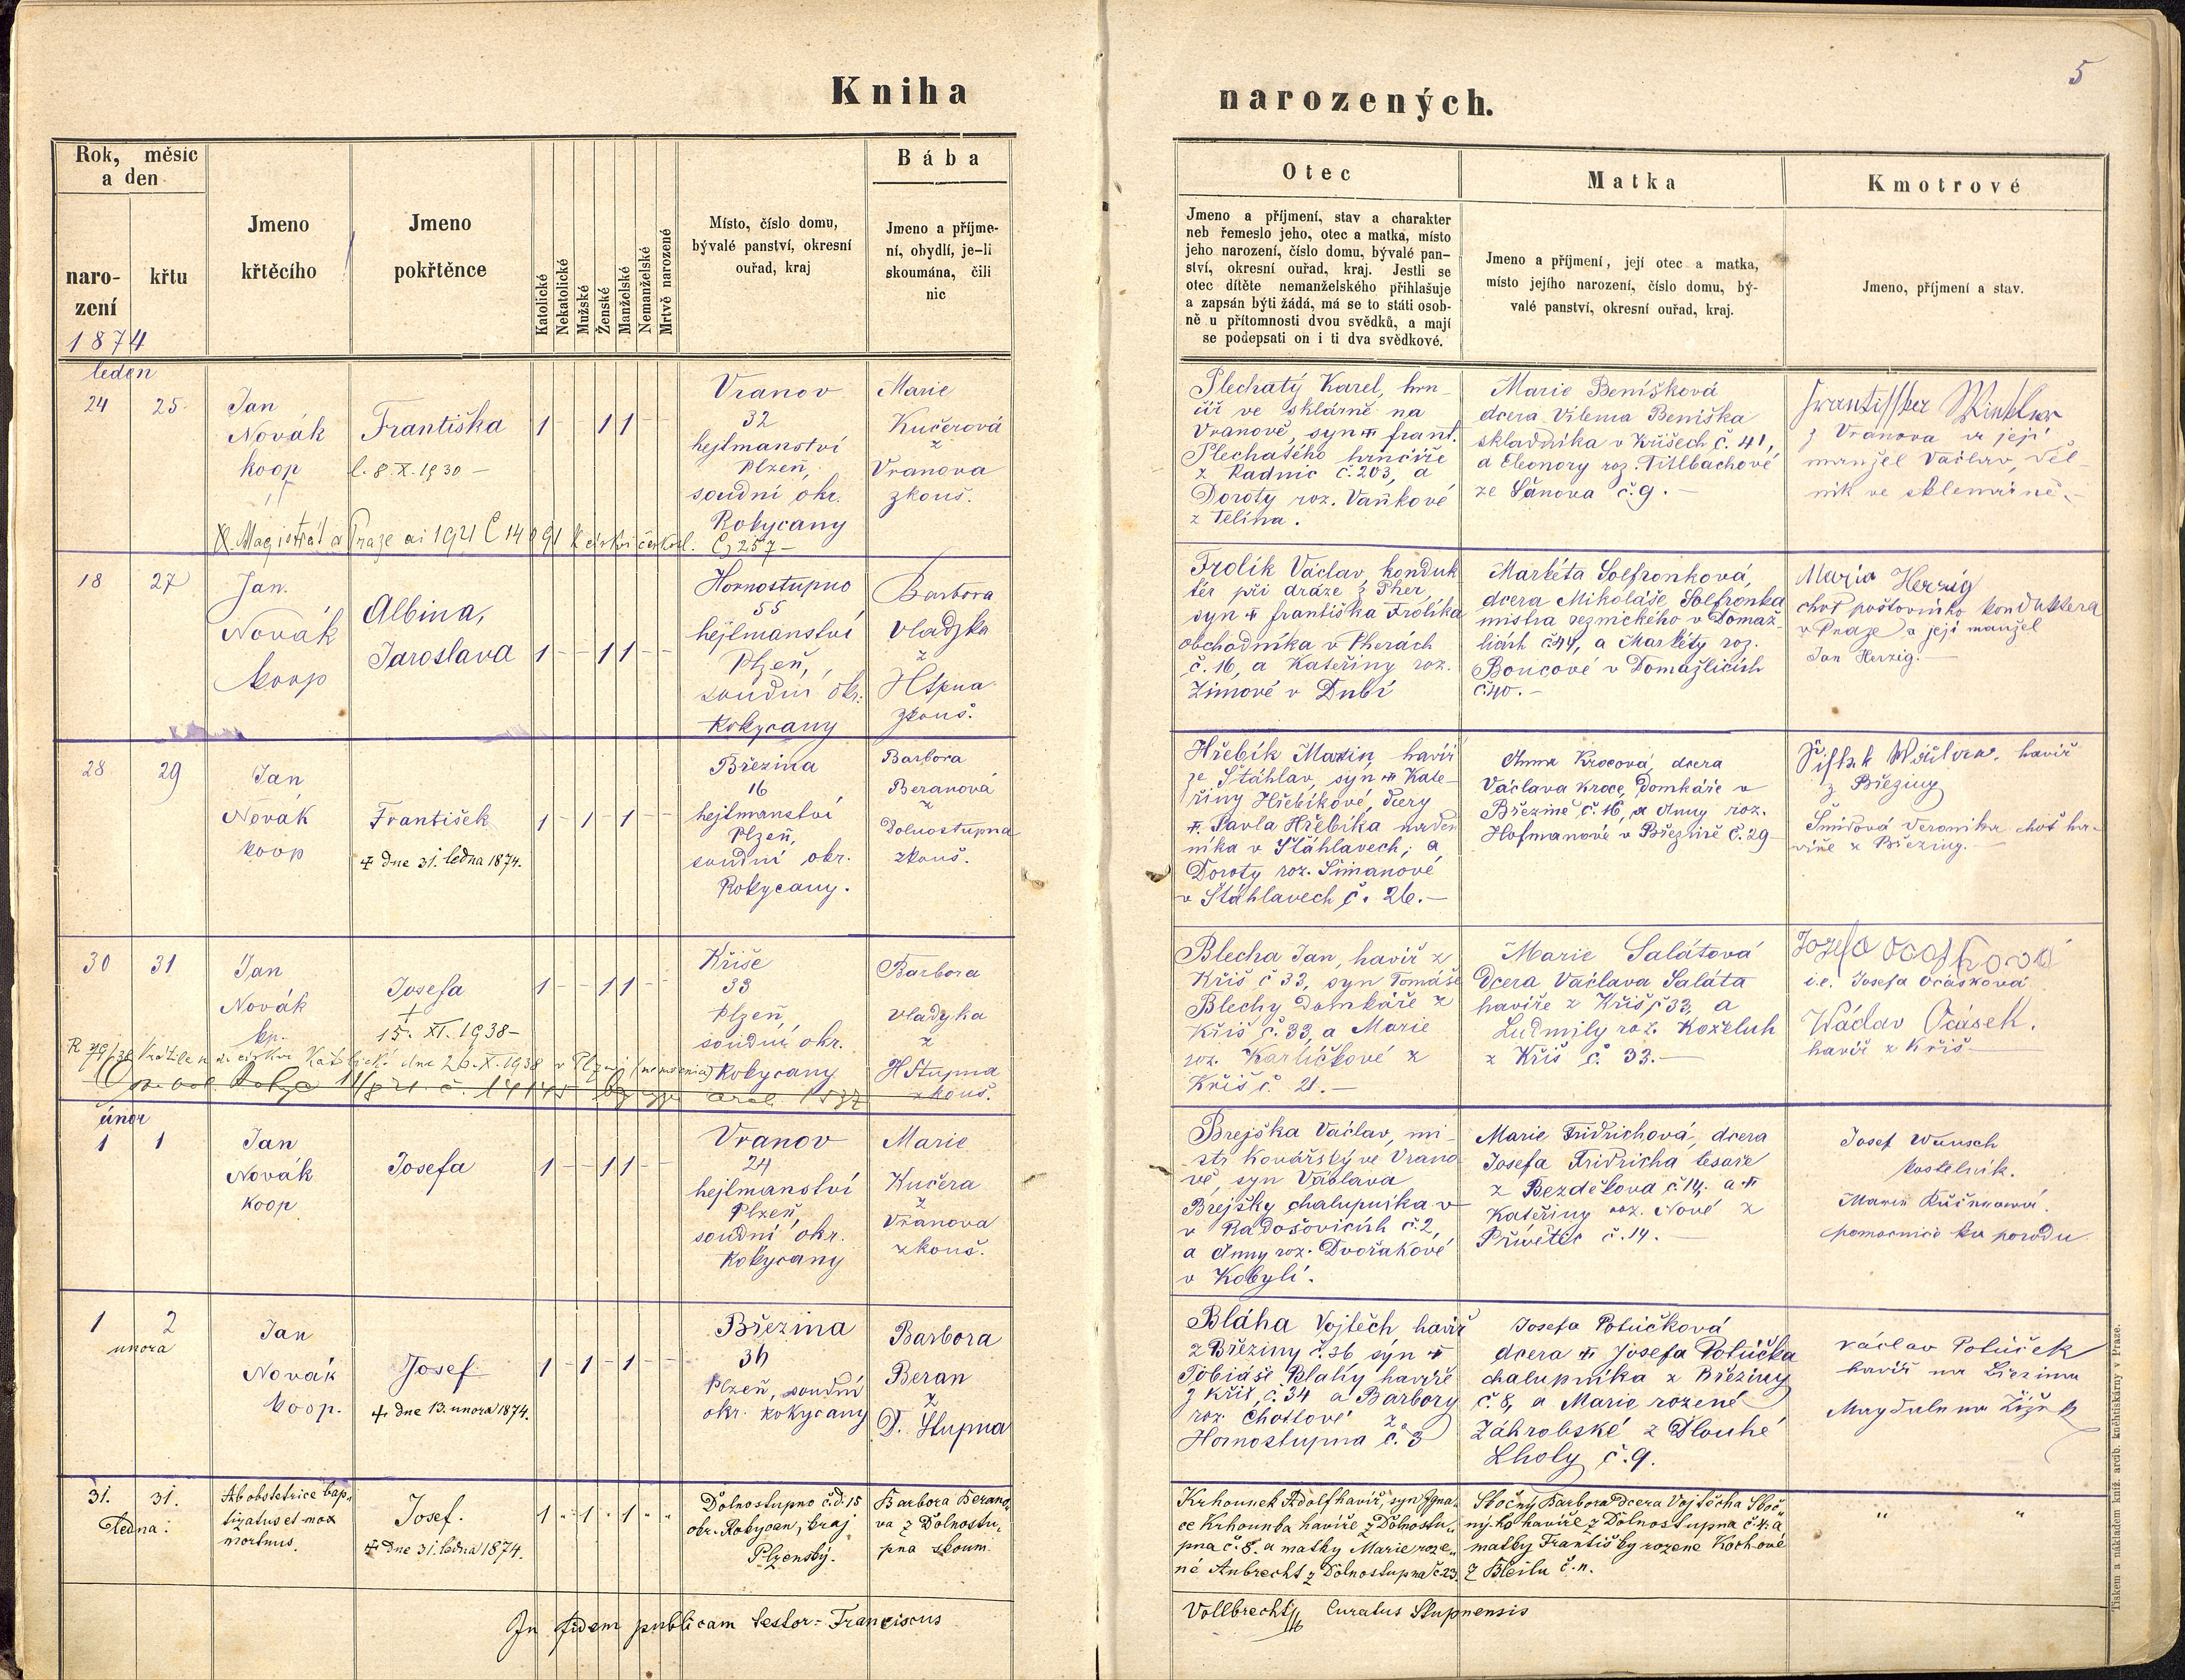 Kniha
narozených.
5
Rok, měsíc
a den
naro-
zení
křtu
1874
Jmeno
křtěcího
Jmeno
pokřtěnce
Katolické
Nekatolické
Mužské
Ženské
Manželské
Nemanželské
Mrtvě narozené
Místo, číslo domu,
bývalé panství, okresní
ouřad, kraj
Bába
Jmeno a příjme-
ní, obydlí, je-li
skoumána, čili
nic
Otec
Jmeno a příjmení, stav a charakter
neb řemeslo jeho, otec a matka, místo
jeho narození, číslo domu, bývalé pan-
ství, okresní ouřad, kraj. Jestli se
otec dítěte nemanželského přihlašuje
a zapsán býti žádá, má se to státi osob-
ně u přítomnosti dvou svědků, a mají
se podepsati on i ti dva svědkové.
Matka
Jmeno a příjmení, její otec a matka,
místo jejího narození, číslo domu, bý-
valé panství, okresní ouřad, kraj.
Kmotrové
Jmeno, příjmení a stav.
leden
24 25.
Jan
Novák
koop
Františka
l. 8. X. 1930 -
1 - - 1 1 - -
Vranov
32
hejtmanství
Plzeň,
soudní okr.
Rokycany
Marie
Kučerová
z
Vranova
zkouš.
Magistrát v Praze
Plechatý Karel, hrn
číř ve sklárně na
Vranově, syn frant.
Plechatého hrnčíře
z Radnic č. 203, a
Doroty roz. Vaňkové
z Telína.
Marie Benišková
dcera Vilema Beniška
skladníka v Křišech č. 41,
a Eleonory roz. Titlbachové
ze Sánova č. 9. -
z Vranova a její
manžel Václav,
18 27
Jan.
Novák
koop
Albina,
Jaroslava
1 - - 1 1 - -
Hornostupno
55
hejtmanství
Plzeň,
soudní okr.
Rokycany
Barbora
Vladyka
z
HStpna
zkouš.
Frolík Václav konduk
tér při dráze z Pher,
syn františka Frolíka
obchodníka v Pherách
č. 16, a Kateřiny roz.
Zimové v Dubí
Markéta Solfronková,
dcera Mikoláše Solfronka
mistra řeznického v Domaž-
licích č44, a Markéty roz.
Boucové v Domažlicích
č40. -
Marie Herzig
choť poštovního konduktera
v Praze a její manžel
Jan Herzig. -
28 29
Jan
Novák
koop
František
dne 31. ledna 1874.
1 - 1 - 1 - -
Březina
16
hejtmanství
Plzeň,
soudní okr.
Rokycany.
Barbora
Beranová
z
Dolnostupna
zkouš.
Hřebík Martin, havíř
ze Štáhlav, syn Kate-
řiny Hřebíkové, dcery
Pavla Hřebíka náden
níka v Štáhlavech, a
Doroty roz. Šimanové
v Štáhlavech č. 26. -
Anna Krocová, dcera
Václava Kroce, Domkáře v
Březině č. 16, a Anny roz.
Hofmanové v Březině č. 29
havíř
z Březiny
Šmídová Veronika choť ha-
víře z Březiny. -
30 31
Jan
Novák
kp.
Josefa
15. XI. 1938 -
1 - - 1 1 - -
Kříše
33
Plzeň,
soudní okr.
Rokycany
Barbora
Vladyka
z
HStupna
zkouš.
Blecha Jan, havíř z
Kříš č 33, syn Tomáše
Blechy Domkáře z
Kříš č. 33, a Marie
roz. Karlíčkové z
Kříš č. 21. -
Marie Salátová
Dcera Václava Saláta
havíře z Kříš č 33, a
Ludmily roz. Koželuh
z Kříš č. 33. -
i.e. Josefa Ocásková
Wáclav Ocásek.
havíř z Kříš -
únor
1 1
Jan
Novák
koop
Josefa
1 - - 1 1 - -
Vranov
24
hejtmanství
Plzeň,
soudní okr.
Rokycany
Marie
Kučera
z
Vranova
zkouš.
Brejška Václav, mi-
str Kovářský ve Vrano
vě, syn Václava
Brejšky chalupníka v
v Radošovicích č. 2,
a Anny roz. Dvořákové
v Kobylí.
Marie Fridrichová, dcera
Josefa Fridricha tesaře
z Bezděkova č. 14, a
Kateřiny roz. Nové z
Přívětic č. 14. -
Josef Wunsch
kostelník.
pomocnice ku porodu
1 2
února
Jan
Novák
koop.
Josef
dne 13. února 1874.
1 - 1 - 1 - -
Březina
36
Plzeň, soudní
okr. Rokycany
Barbora
Beran
z
D. Stupna
Bláha Vojtěch havíř
z Březiny č. 36 syn
Tobiáše Bláhy havíře
z Kříš, č. 34 a Barbory
roz. Chottové z
Hornostupna č. 3
Josefa Potůčková
dcera Josefa Potůčka
chalupníka z Březiny
č. 8, a Marie rozené
Záhrobské z Dlouhé
Lhoty č. 9.
Václav Potůček
havíř na Březina
31. 31.
ledna.
Ab obstetrice bap-
tizatus et mox
mortuus.
Josef.
dne 31. ledna 1874.
1 " 1 " 1 " "
Dolnostupno č.d. 15
okr. Rokycan, kraj
Plzenský.
Barbora Berano,
va z Dolnostu,
pna skoum.
Krhounek Adolf havíř, syn Igna-
ce Krhounka havíře z Dolnostu,,
pna č. 8. a matky Marie roze,,
né Aubrecht z Dolnostupna č. 23.
Sločný Barbora Dcera Vojtěcha Sloč
ný-ho havíře z Dolnostupna č. 4. a
matky Františky rozené Kochové
" "
In fidem publicam testor: Franciscus
Vollbrecht Curatus Stupnensis
Tiskem a nákladem kníž. arcib. kněhtiskárny v Praze.